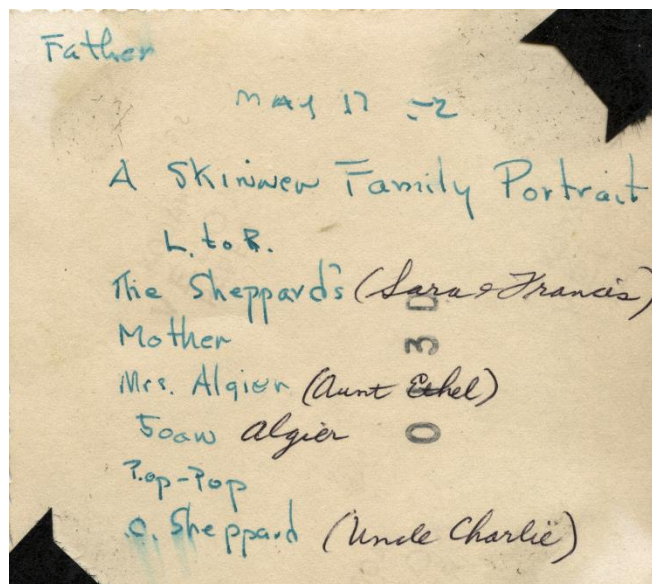 Father
May 17 52
A Skinner Family Portrait
L. to R.
The Sheppard's (Sara & Francis)
Mother
Mrs. Algier (Aunt Ethel)
Joan Algier
Pop-Pop
C. Sheppard (Uncle Charlie)